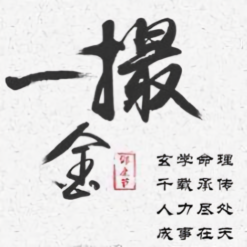 一撮金
玄学命理
千载承传
人力尽处
成事在天